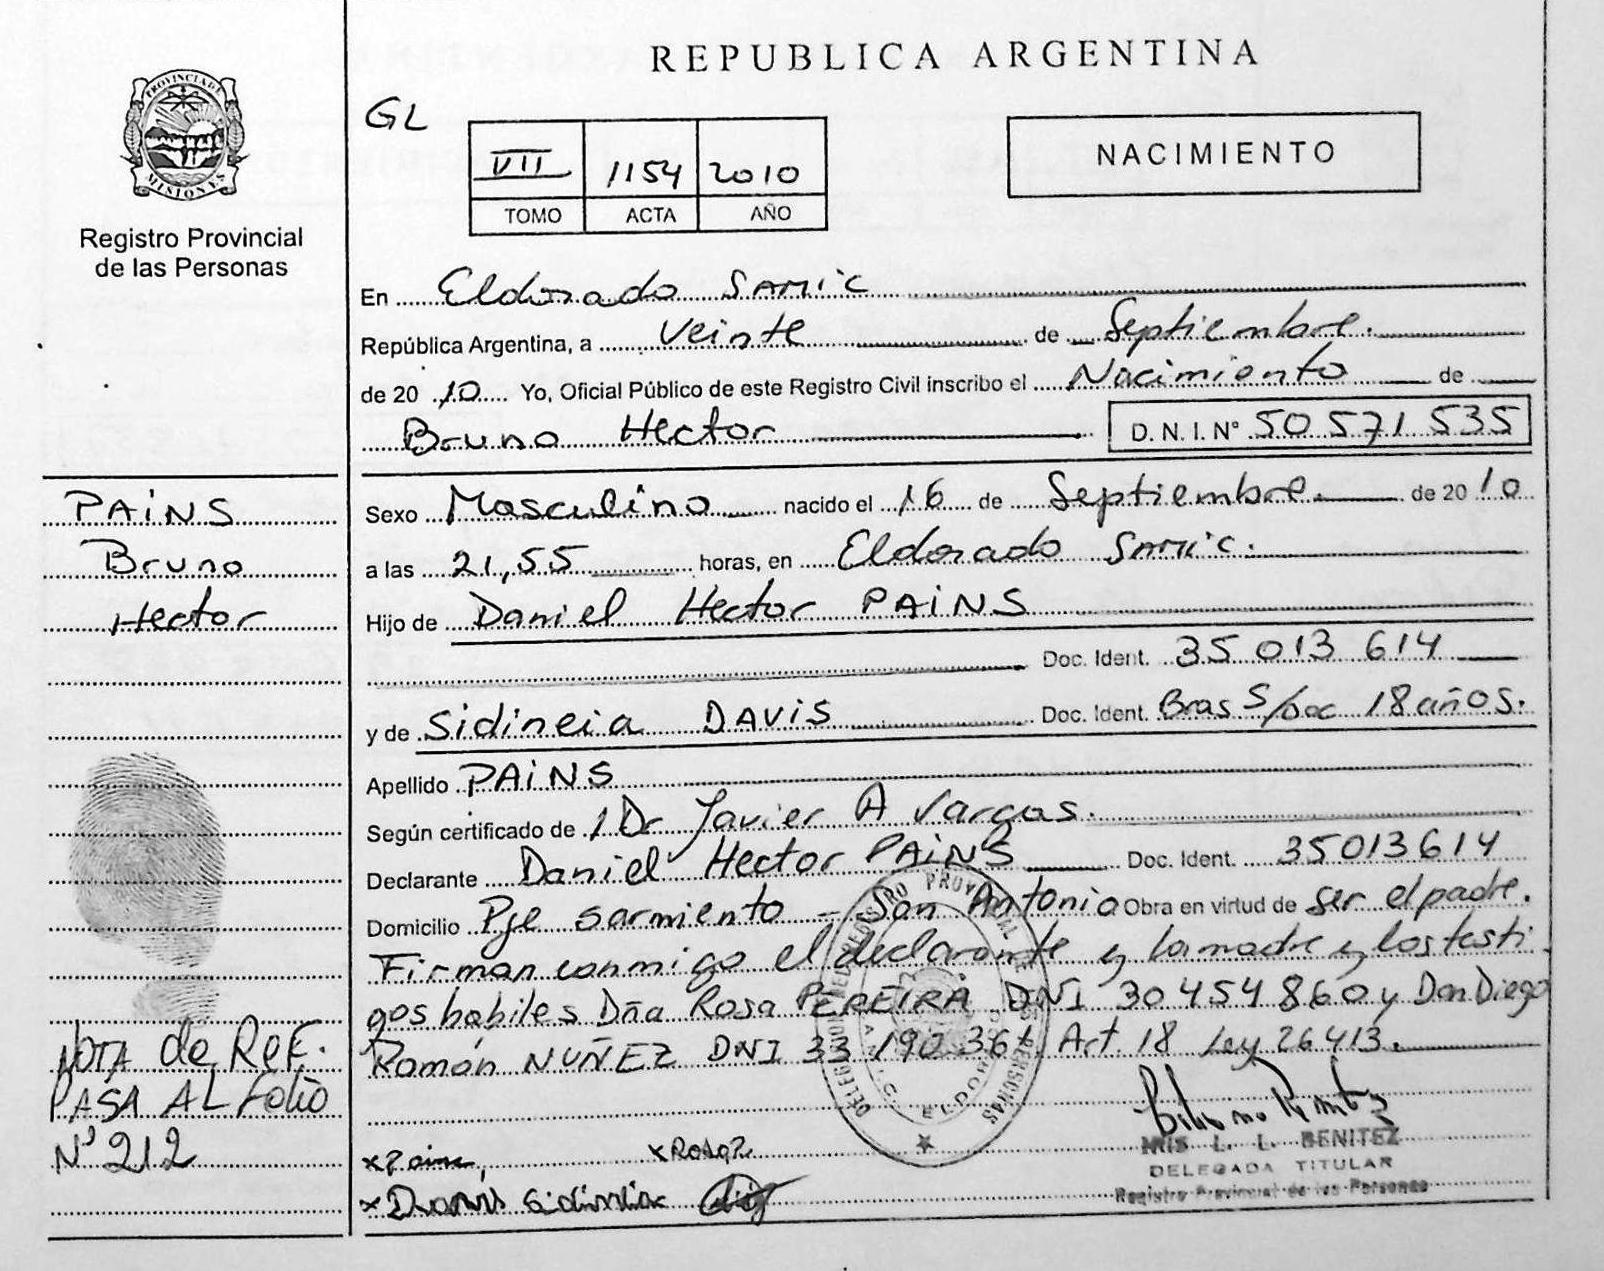 REPUBLICA ARGENTINA
PROVINCIA DE
MISIONES
Registro Provincial
de las Personas
GL
VII 1154 2010
TOMO ACTA AÑO
NACIMIENTO
En Eldorado SAMIC
República Argentina, a Veinte de Septiembre.
de 2010 Yo, Oficial Público de este Registro Civil inscribo el Nacimiento de
Bruno Hector D.N.I. N° 50 571 535
PAINS
Bruno
Hector
Sexo Masculino nacido el 16 de Septiembre. de 2010
a las 21,55 horas, en Eldorado SAMIC.
Hijo de Daniel Hector PAINS
Doc. Ident. 35 013 614
y de Sidineia DAVIS Doc. Ident. Bras S/Doc 18 años.
Apellido PAINS
Según certificado de / Dr Javier A Vargas.
Declarante Daniel Hector PAINS Doc. Ident. 35013614
Domicilio Pje sarmiento - San Antonio Obra en virtud de ser el padre.
Firman conmigo el declarante y la madre y los testi
gos habiles Dña Rosa PEREIRA DNI 30454860 y Don Diego
Ramón NUÑEZ DNI 33 190 36 Art. 18 Ley 26413.
NOTA de REF.
PASA AL Folio
N° 212
L. L. BENITEZ
DELEGADA TITULAR
Registro Provincial de las Personas